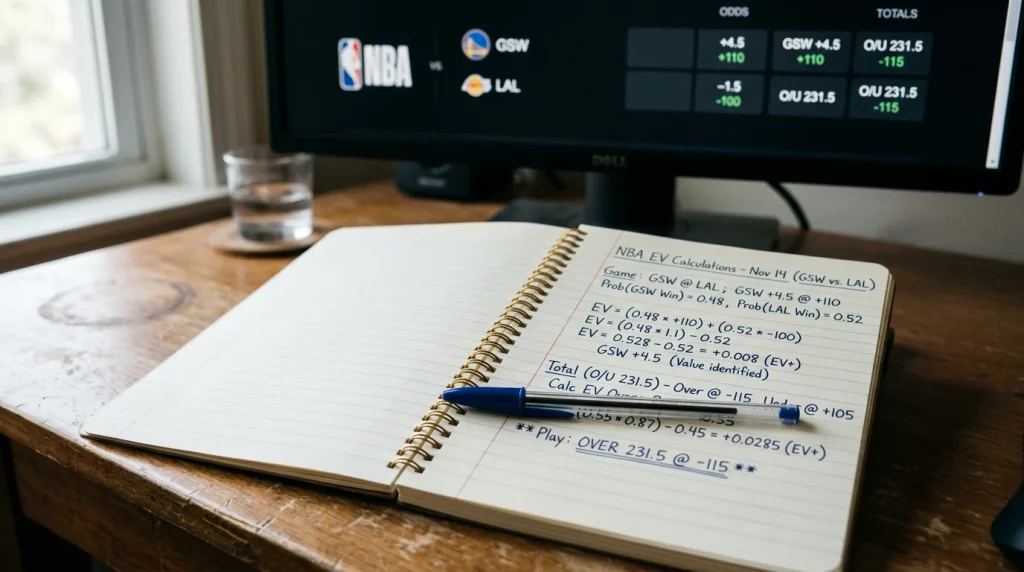 ODDS
TOTALS
NBA
vs
GSW
LAL
+4.5
+110
GSW +4.5
+110
O/U 231.5
-115
-1.5
-100
O/U 231.5
O/U 231.5
-115
DELL
NBA EV Calculations - Nov 14 (GSW vs. LAL)
Game: GSW @ LAL; GSW +4.5 @ +110
Prob(GSW Win) = 0.48, Prob(LAL Win) = 0.52
EV = (0.48 * +110) + (0.52 * -100)
EV = (0.48 * 1.1) - 0.52
EV = 0.528 - 0.52 = +0.008 (EV+)
GSW +4.5 (Value identified)
Total (O/U 231.5) - Over @ -115 @ +105
Calc EV
(0.55 * 0.87) - 0.45 = +0.0285 (EV+)
** Play: OVER 231.5 @ -115 **